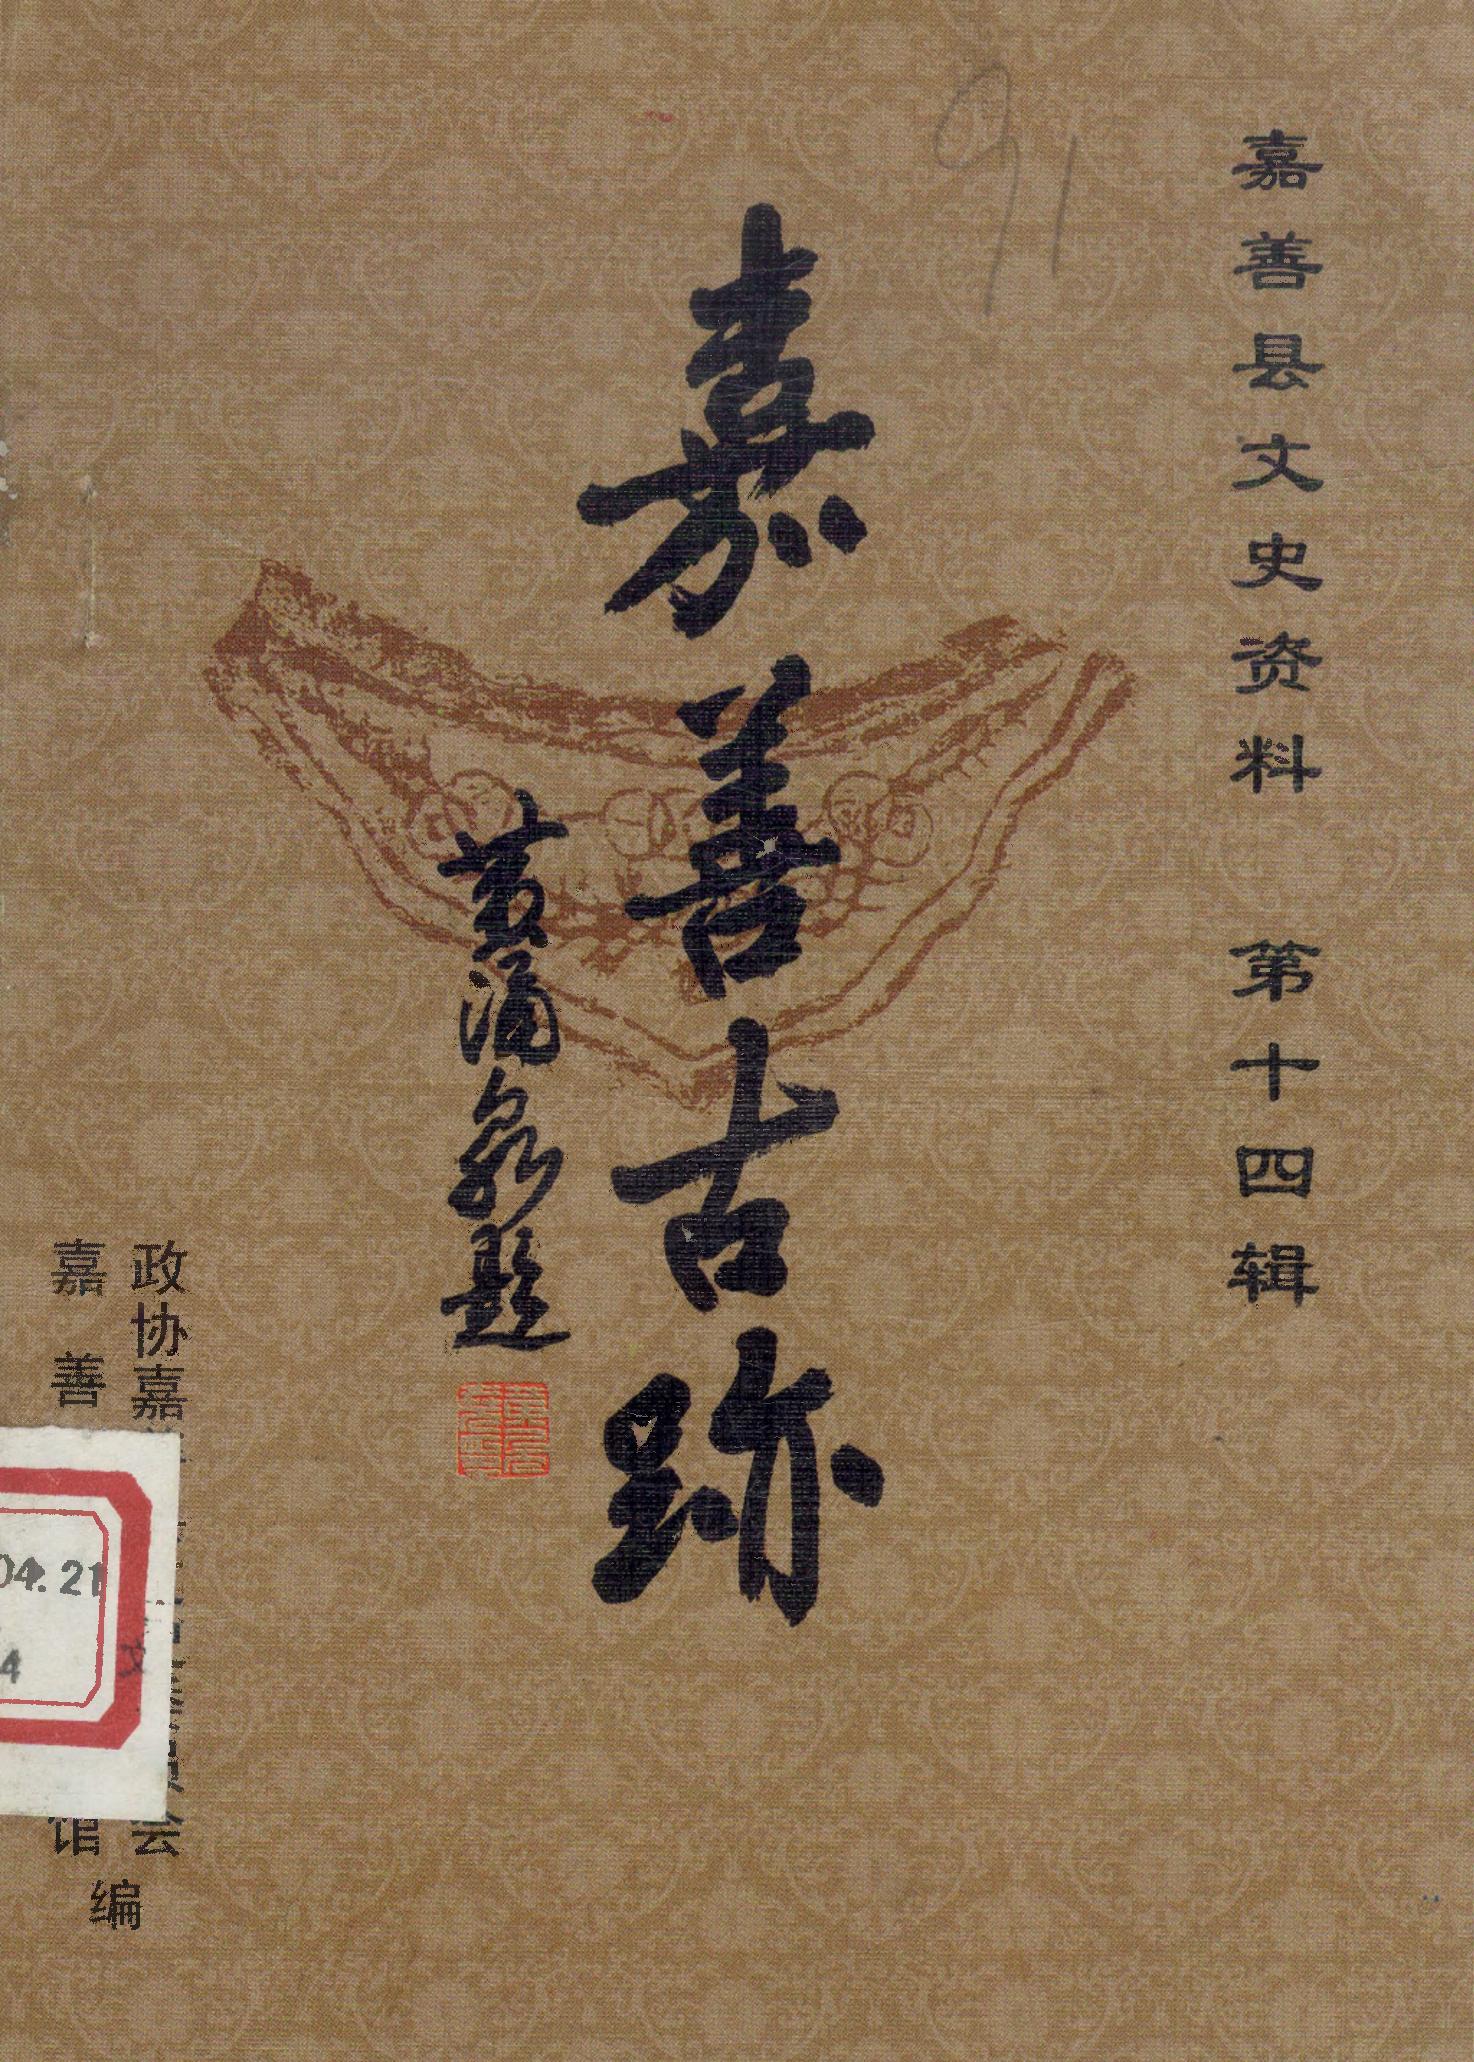 嘉善县文史资料 第十四辑
91
嘉善古跡
黄涌泉题
政协嘉
会
嘉善
馆
编
04.21
4